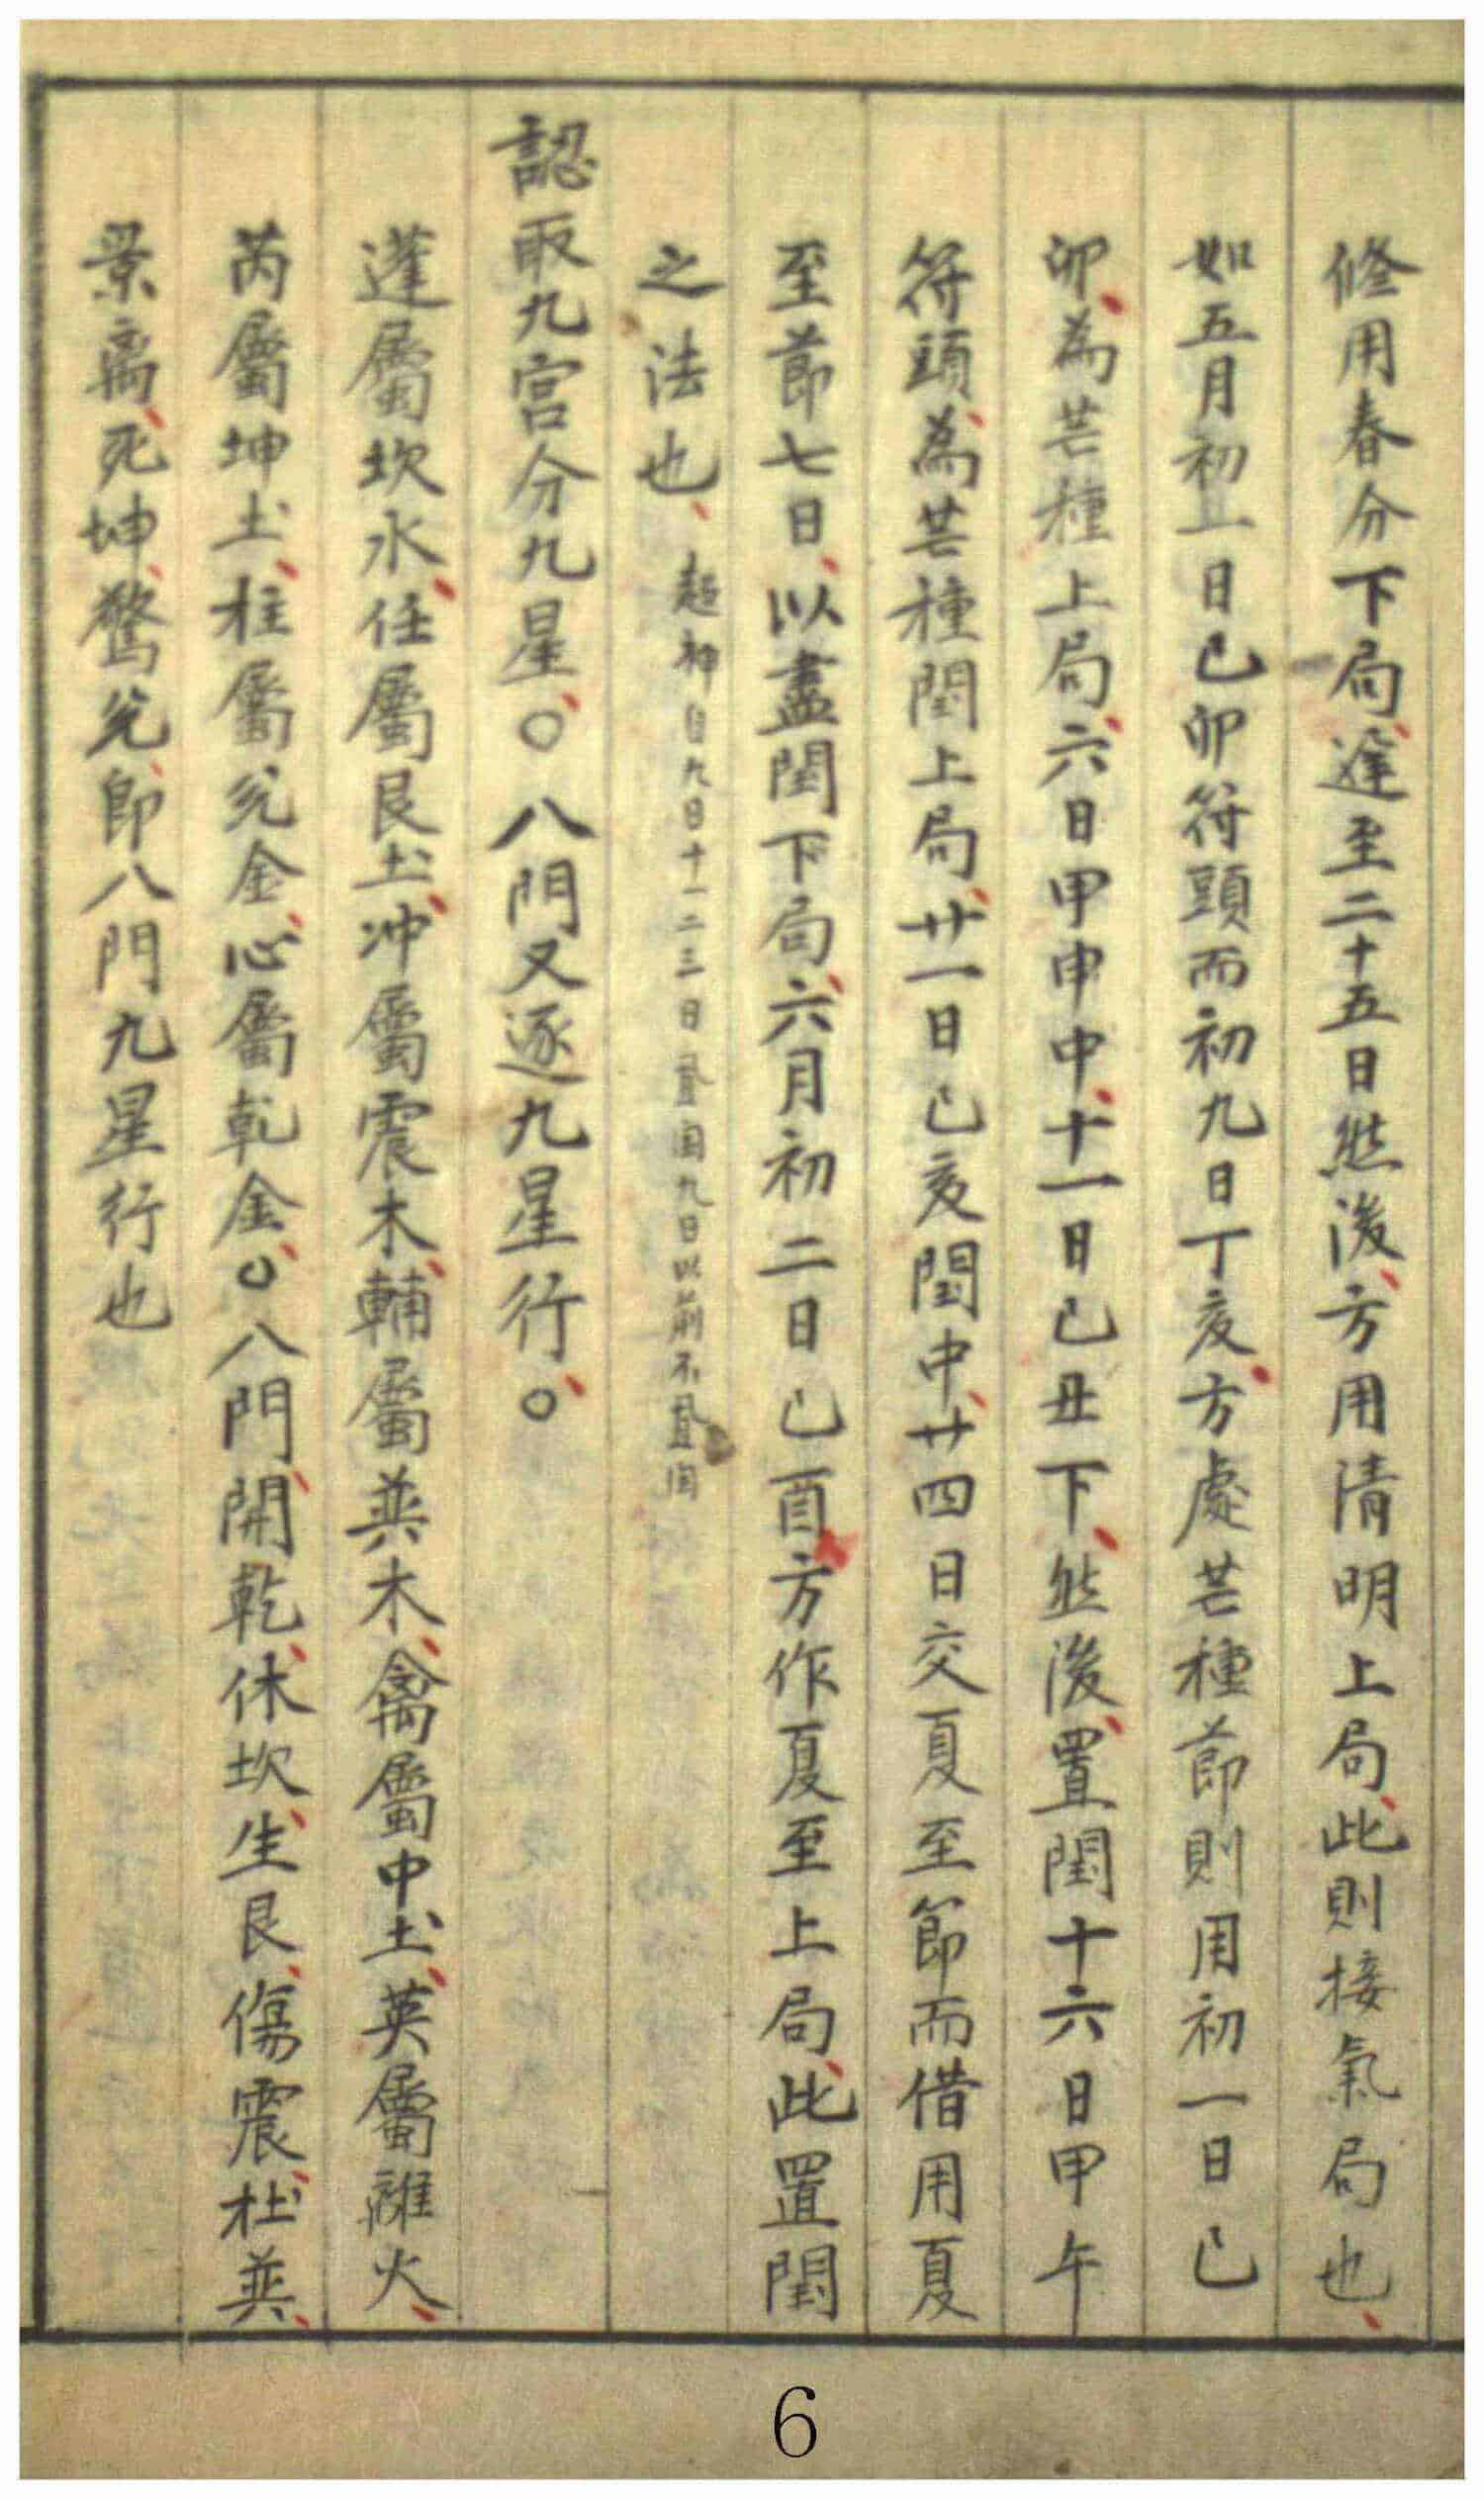 修用春分下局、遲至二十五日然後、方用清明上局、此則接氣局也、
如五月初一日己卯符頭而初九日丁亥、方處芒種節則用初一日己
卯、為芒種上局、六日甲申中、十一日己丑下、然後、置閏十六日甲午
符頭、為芒種閏上局、廿一日己亥閏中、廿四日交夏至節而借用夏
至節七日、以盡閏下局、六月初二日己酉方作夏至上局、此置閏
之法也、超神自九日十一二三日置閏九日以前不置閏
認取九宮分九星、○八門又逐九星行、○
蓬屬坎水、任屬艮土、冲屬震木、輔屬巽木、禽屬中土、英屬離火、
芮屬坤土、柱屬兌金、心屬乾金、○八門、開乾、休坎、生艮、傷震、杜巽、
景离、死坤、驚兌、即八門九星行也
6